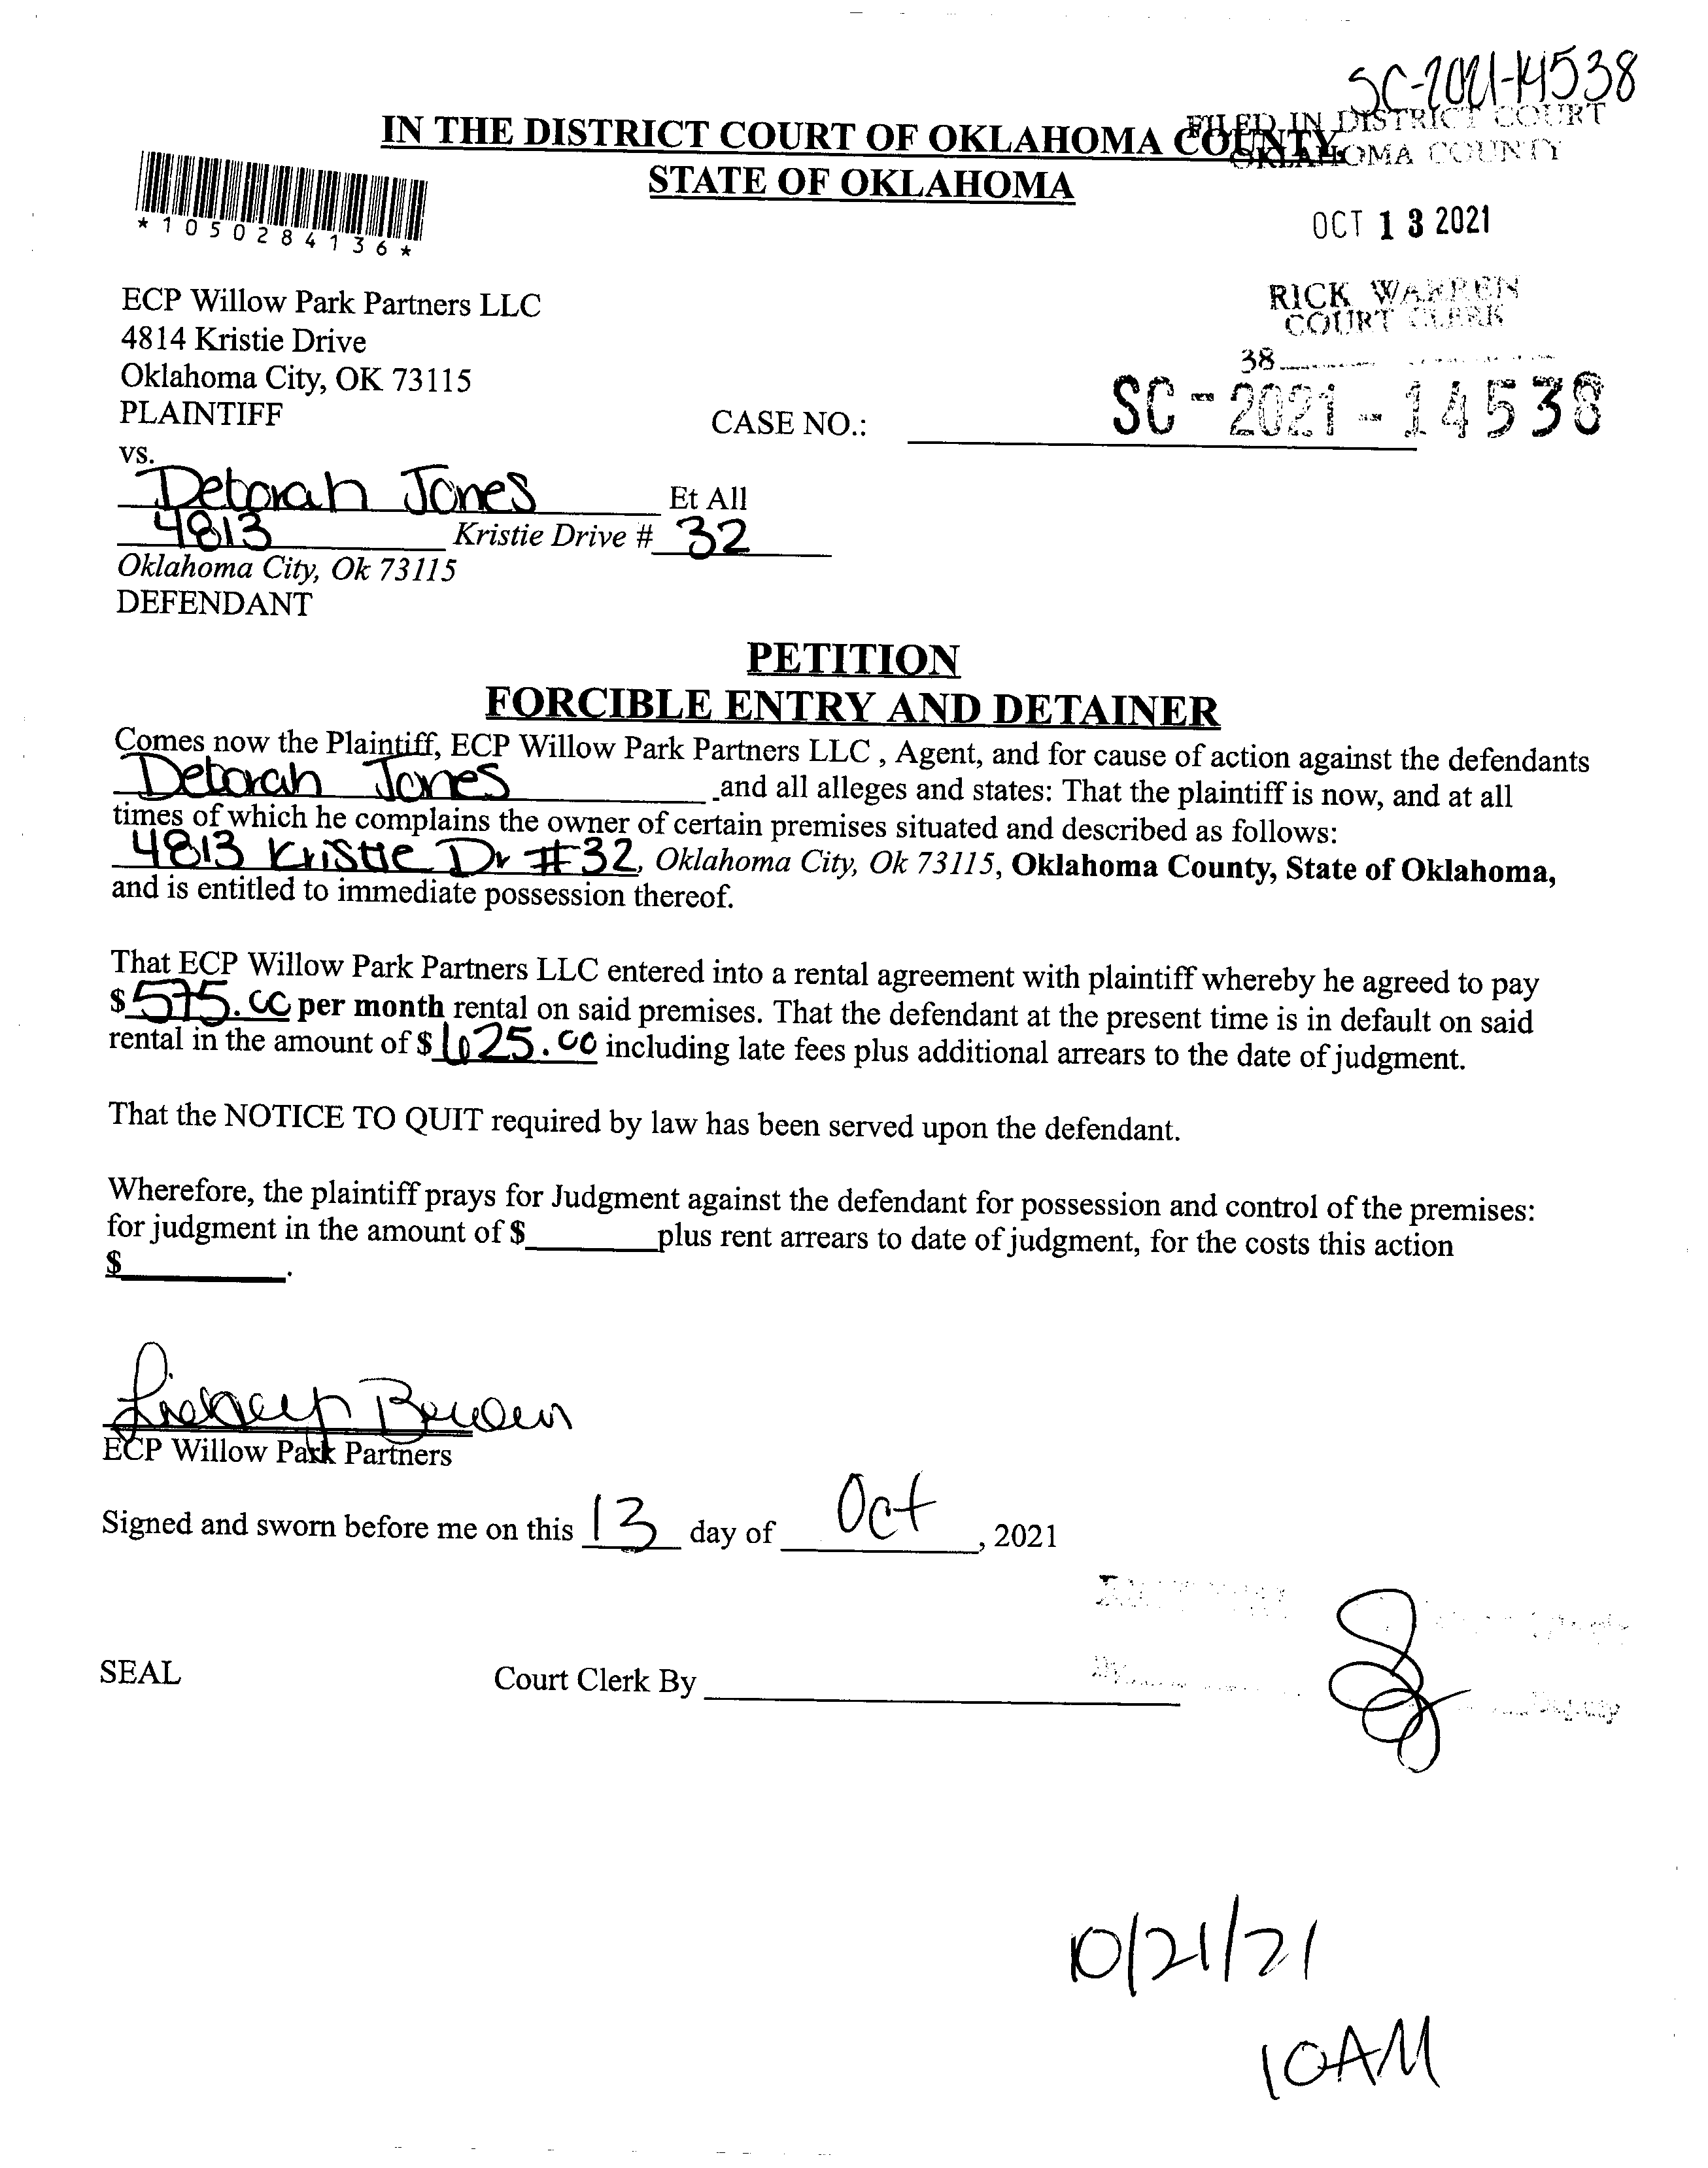 SC-2021-14538
IN THE DISTRICT COURT OF OKLAHOMA COUNTY
FILED IN DISTRICT COURT
OKLAHOMA COUNTY
STATE OF OKLAHOMA
*1050284136*
OCT 13 2021
RICK WARREN
COURT CLERK
38
ECP Willow Park Partners LLC
4814 Kristie Drive
Oklahoma City, OK 73115
PLAINTIFF
CASE NO.: SC-2021-14538
vs.
Deborah Jones Et All
4813 Kristie Drive # 32
Oklahoma City, Ok 73115
DEFENDANT
PETITION
FORCIBLE ENTRY AND DETAINER
Comes now the Plaintiff, ECP Willow Park Partners LLC , Agent, and for cause of action against the defendants
Deborah Jones and all alleges and states: That the plaintiff is now, and at all
times of which he complains the owner of certain premises situated and described as follows:
4813 Kristie Dr #32, Oklahoma City, Ok 73115, Oklahoma County, State of Oklahoma,
and is entitled to immediate possession thereof.
That ECP Willow Park Partners LLC entered into a rental agreement with plaintiff whereby he agreed to pay
$ 575.00 per month rental on said premises. That the defendant at the present time is in default on said
rental in the amount of $ 625.00 including late fees plus additional arrears to the date of judgment.
That the NOTICE TO QUIT required by law has been served upon the defendant.
Wherefore, the plaintiff prays for Judgment against the defendant for possession and control of the premises:
for judgment in the amount of $________plus rent arrears to date of judgment, for the costs this action
$__________.
ECP Willow Park Partners
Signed and sworn before me on this 13 day of Oct, 2021
SEAL
Court Clerk By
By
Deputy
10/21/21
10AM